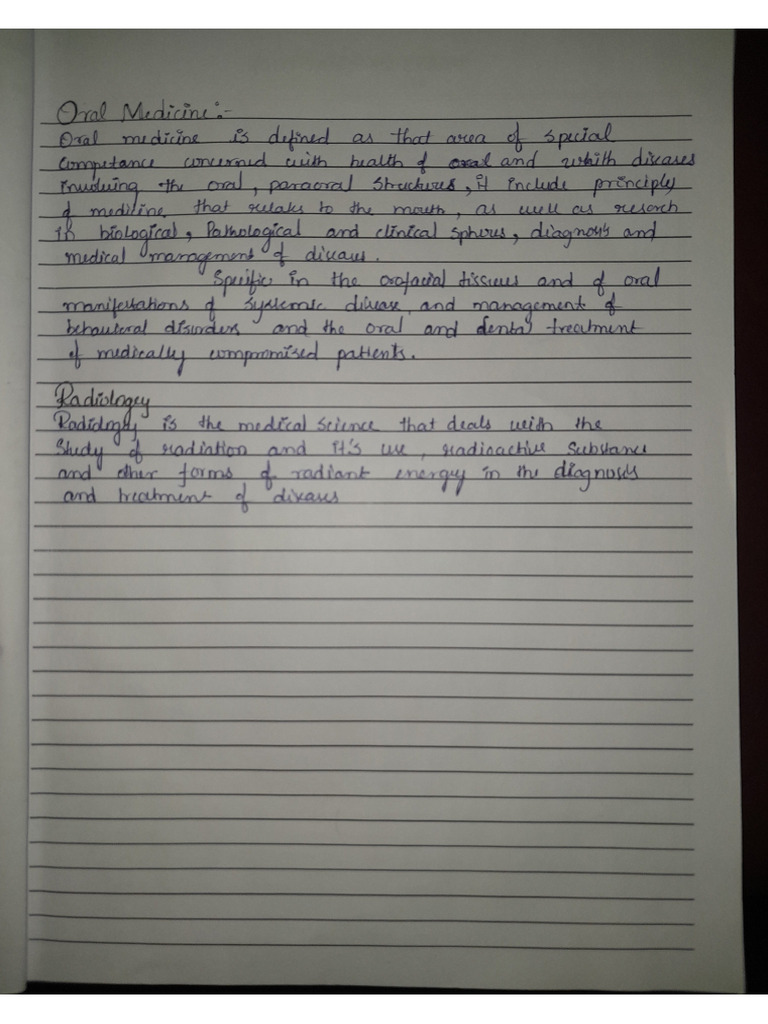 Oral Medicine:-
Oral medicine is defined as that area of special
Competance concerned with health of oral and whith diseases
involving the oral, paraoral structures, it include principly
of medicine that relates to the mouth, as well as reserch
in biological, Pathological and clinical spheres, diagnosis and
medical management of diseases.
Specific in the orofacial tissues and of oral
manifestations of systemic disease, and management of
behavioral disorders and the oral and dental treatment
of medically compromised patients.
Radiologey
Radiology is the medical science that deals with the
study of radiation and it's use, radioactive substance
and other forms of radiant energy in the diagnosis
and treatment of diseases